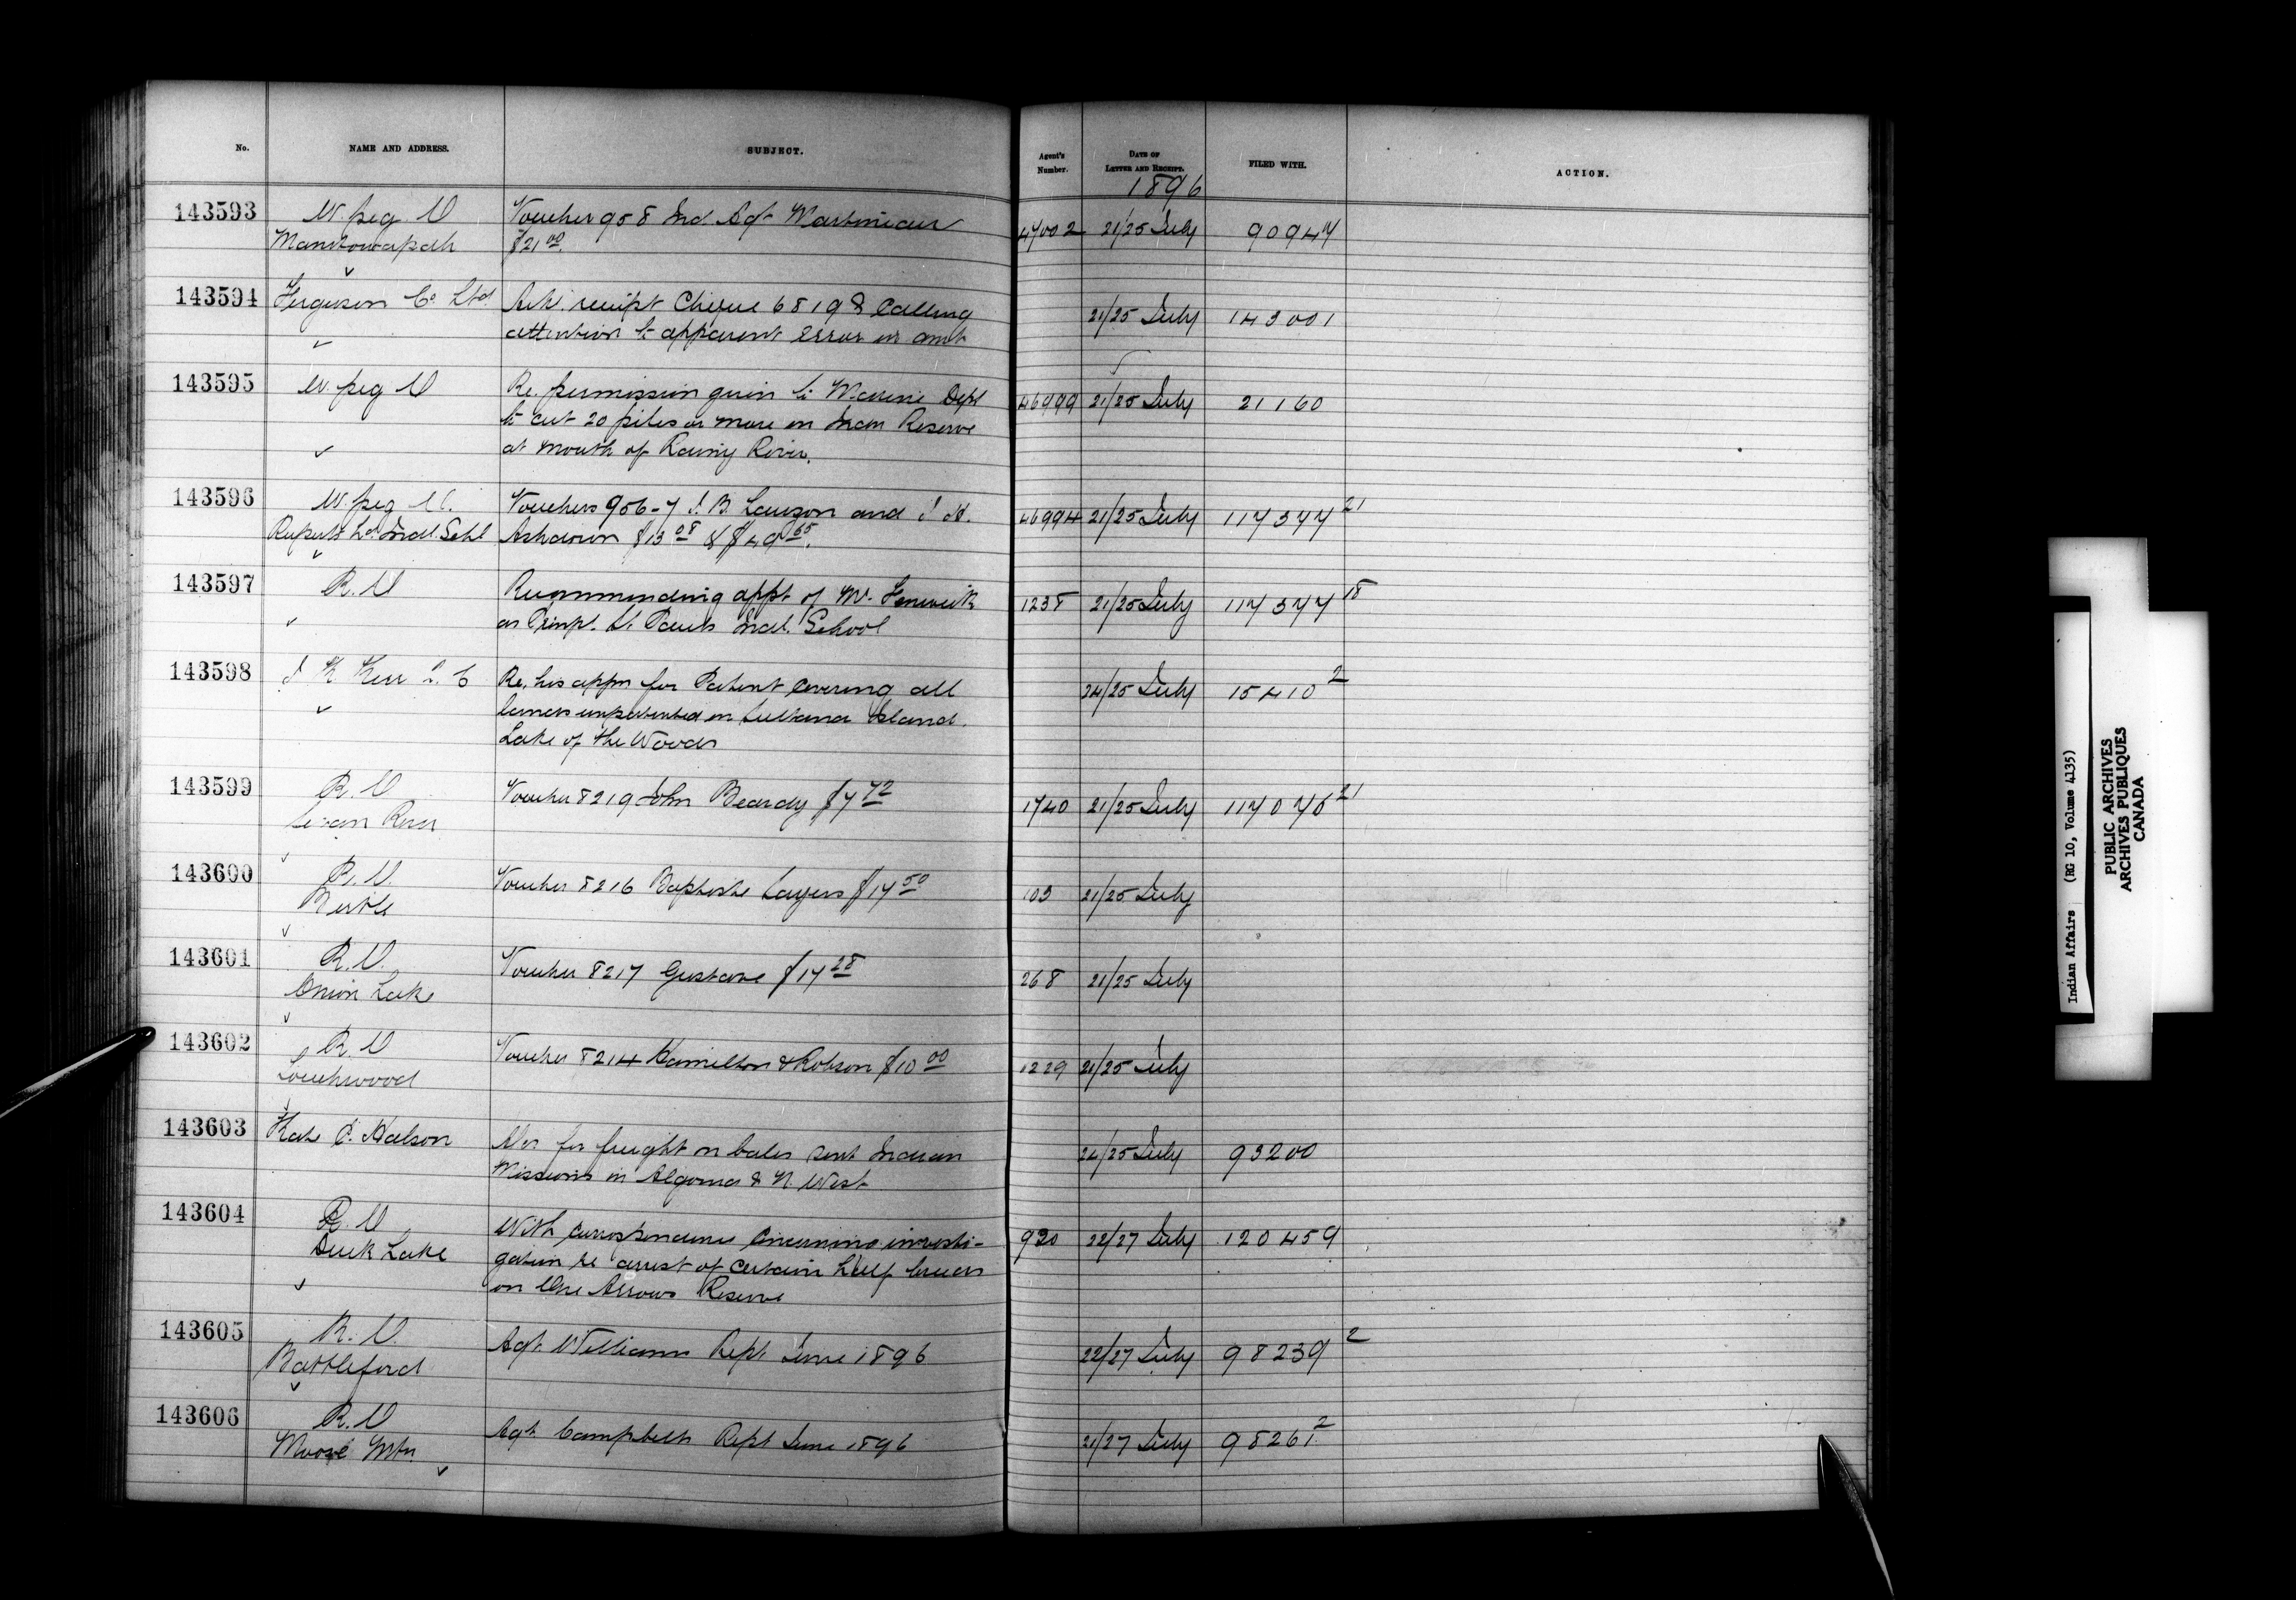 No. NAME AND ADDRESS. SUBJECT. Agent's Number. DATE OF LETTER AND RECEIPT. FILED WITH. ACTION.
1896
143593 W.peg O Voucher 958 Ind. Agt Martineau 47002 21/25 July 90947
Manitowapah $21 00.
143594 Ferguson Co Ltd Ack. receipt Cheque 6819 & Calling 21/25 July 143001
attention to apparent error in amt
143595 W.peg O Re. permission given to Marine Dept 46999 21/25 July 21160
to cut 20 piles or more on Indn Reserve
at mouth of Rainy River.
143596 W.peg O. Vouchers 956-7 J. B. Lauzon and J. H. 46994 21/25 July 117377 21
Ruperts Ld Indl. Schl Ashdown $13 08 & $49 65.
143597 R. O Recommending appt of Mr. Fenwick 1238 21/25 July 117377 18
as Prinpl. St. Pauls Indl. School
143598 J K Kerr Q. C Re. his appn for Patent covering all 24/25 July 15410 2
lands unpatented on Sultana Island.
Lake of the Woods
143599 R. O Voucher 8219 John Beardy $7 72 1740 21/25 July 117076 21
Swan River
143600 R. O. Voucher 8216 Baptiste Sayers $14 50 103 21/25 July
Birtle
143601 R. O. Voucher 8217 Gustave $14 28 268 21/25 July
Onion Lake
143602 R. O Voucher 8214 Hamilton & Robson $10 00 1229 21/25 July
Touchwood
143603 Kate C. Halson Acs for freight on bales sent Indian 24/25 July 93200
Missions in Algoma & N. West
143604 R. O. With correspondence concerning investi- 930 22/27 July 120459
Duck Lake gation re arrest of certain half breeds
on One Arrows Reserve
143605 R. O. Agt. Williams Rept June 1896 22/27 July 98239 2
Battleford
143606 R. O Agt. Campbells Rept June 1896 21/27 July 98261 2
Moose Mtn
Indian Affairs (RG 10, Volume 4135)
PUBLIC ARCHIVES
ARCHIVES PUBLIQUES
CANADA